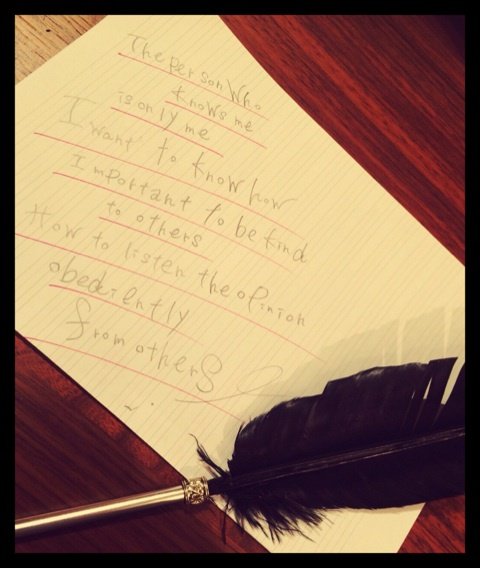 The person Who
knows me
is only me
I want to know how
Important to be kind
to others
How to listen the opinion
obediently
from others